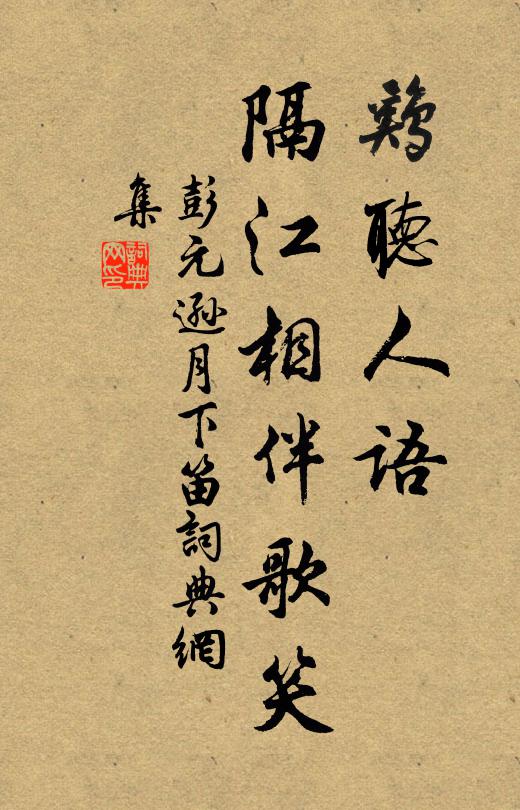 鷄聽人語
隔江相伴歌笑
彭元遜月下笛詞典網
集
詞典網印